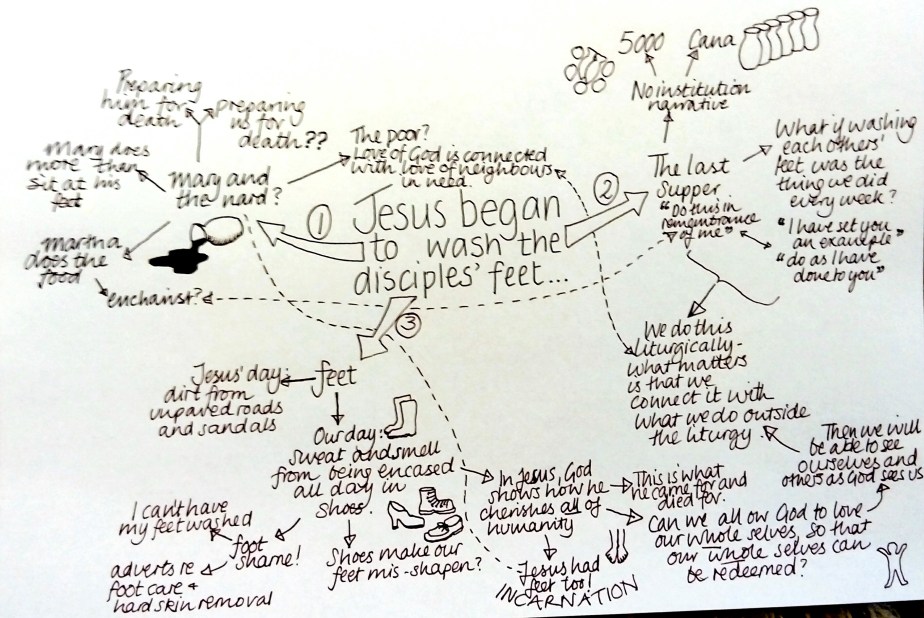 Jesus began
to wash the
disciples' feet...
①
Mary and
the nard?
Preparing
him for
death
preparing
us for
death??
Mary does
more than
sit at his
feet
Martha
does the
food
eucharist?
The poor?
Love of God is connected
with love of neighbours
in need.
②
The last
Supper
"Do this in
remembrance
of me"
No institution
narrative
5000
Cana
What if washing
each others'
feet was the
thing we did
every week?
"I have set you
an example"
"do as I have
done to you"
We do this
liturgically -
what matters
is that we
connect it with
what we do outside
the liturgy.
③
feet
Jesus' day:
dirt from
unpaved roads
and sandals
Our day:
sweat and smell
from being encased
all day in
shoes.
foot
shame!
I can't have
my feet washed
adverts re
foot care +
hard skin removal
Shoes make our
feet mis-shapen?
In Jesus, God
shows how he
cherishes all of
humanity
Jesus had
feet too!
INCARNATION
This is what
he came for and
died for.
Can we all our God to love
our whole selves, so that
our whole selves can
be redeemed?
Then we will
be able to see
ourselves and
others as God sees us